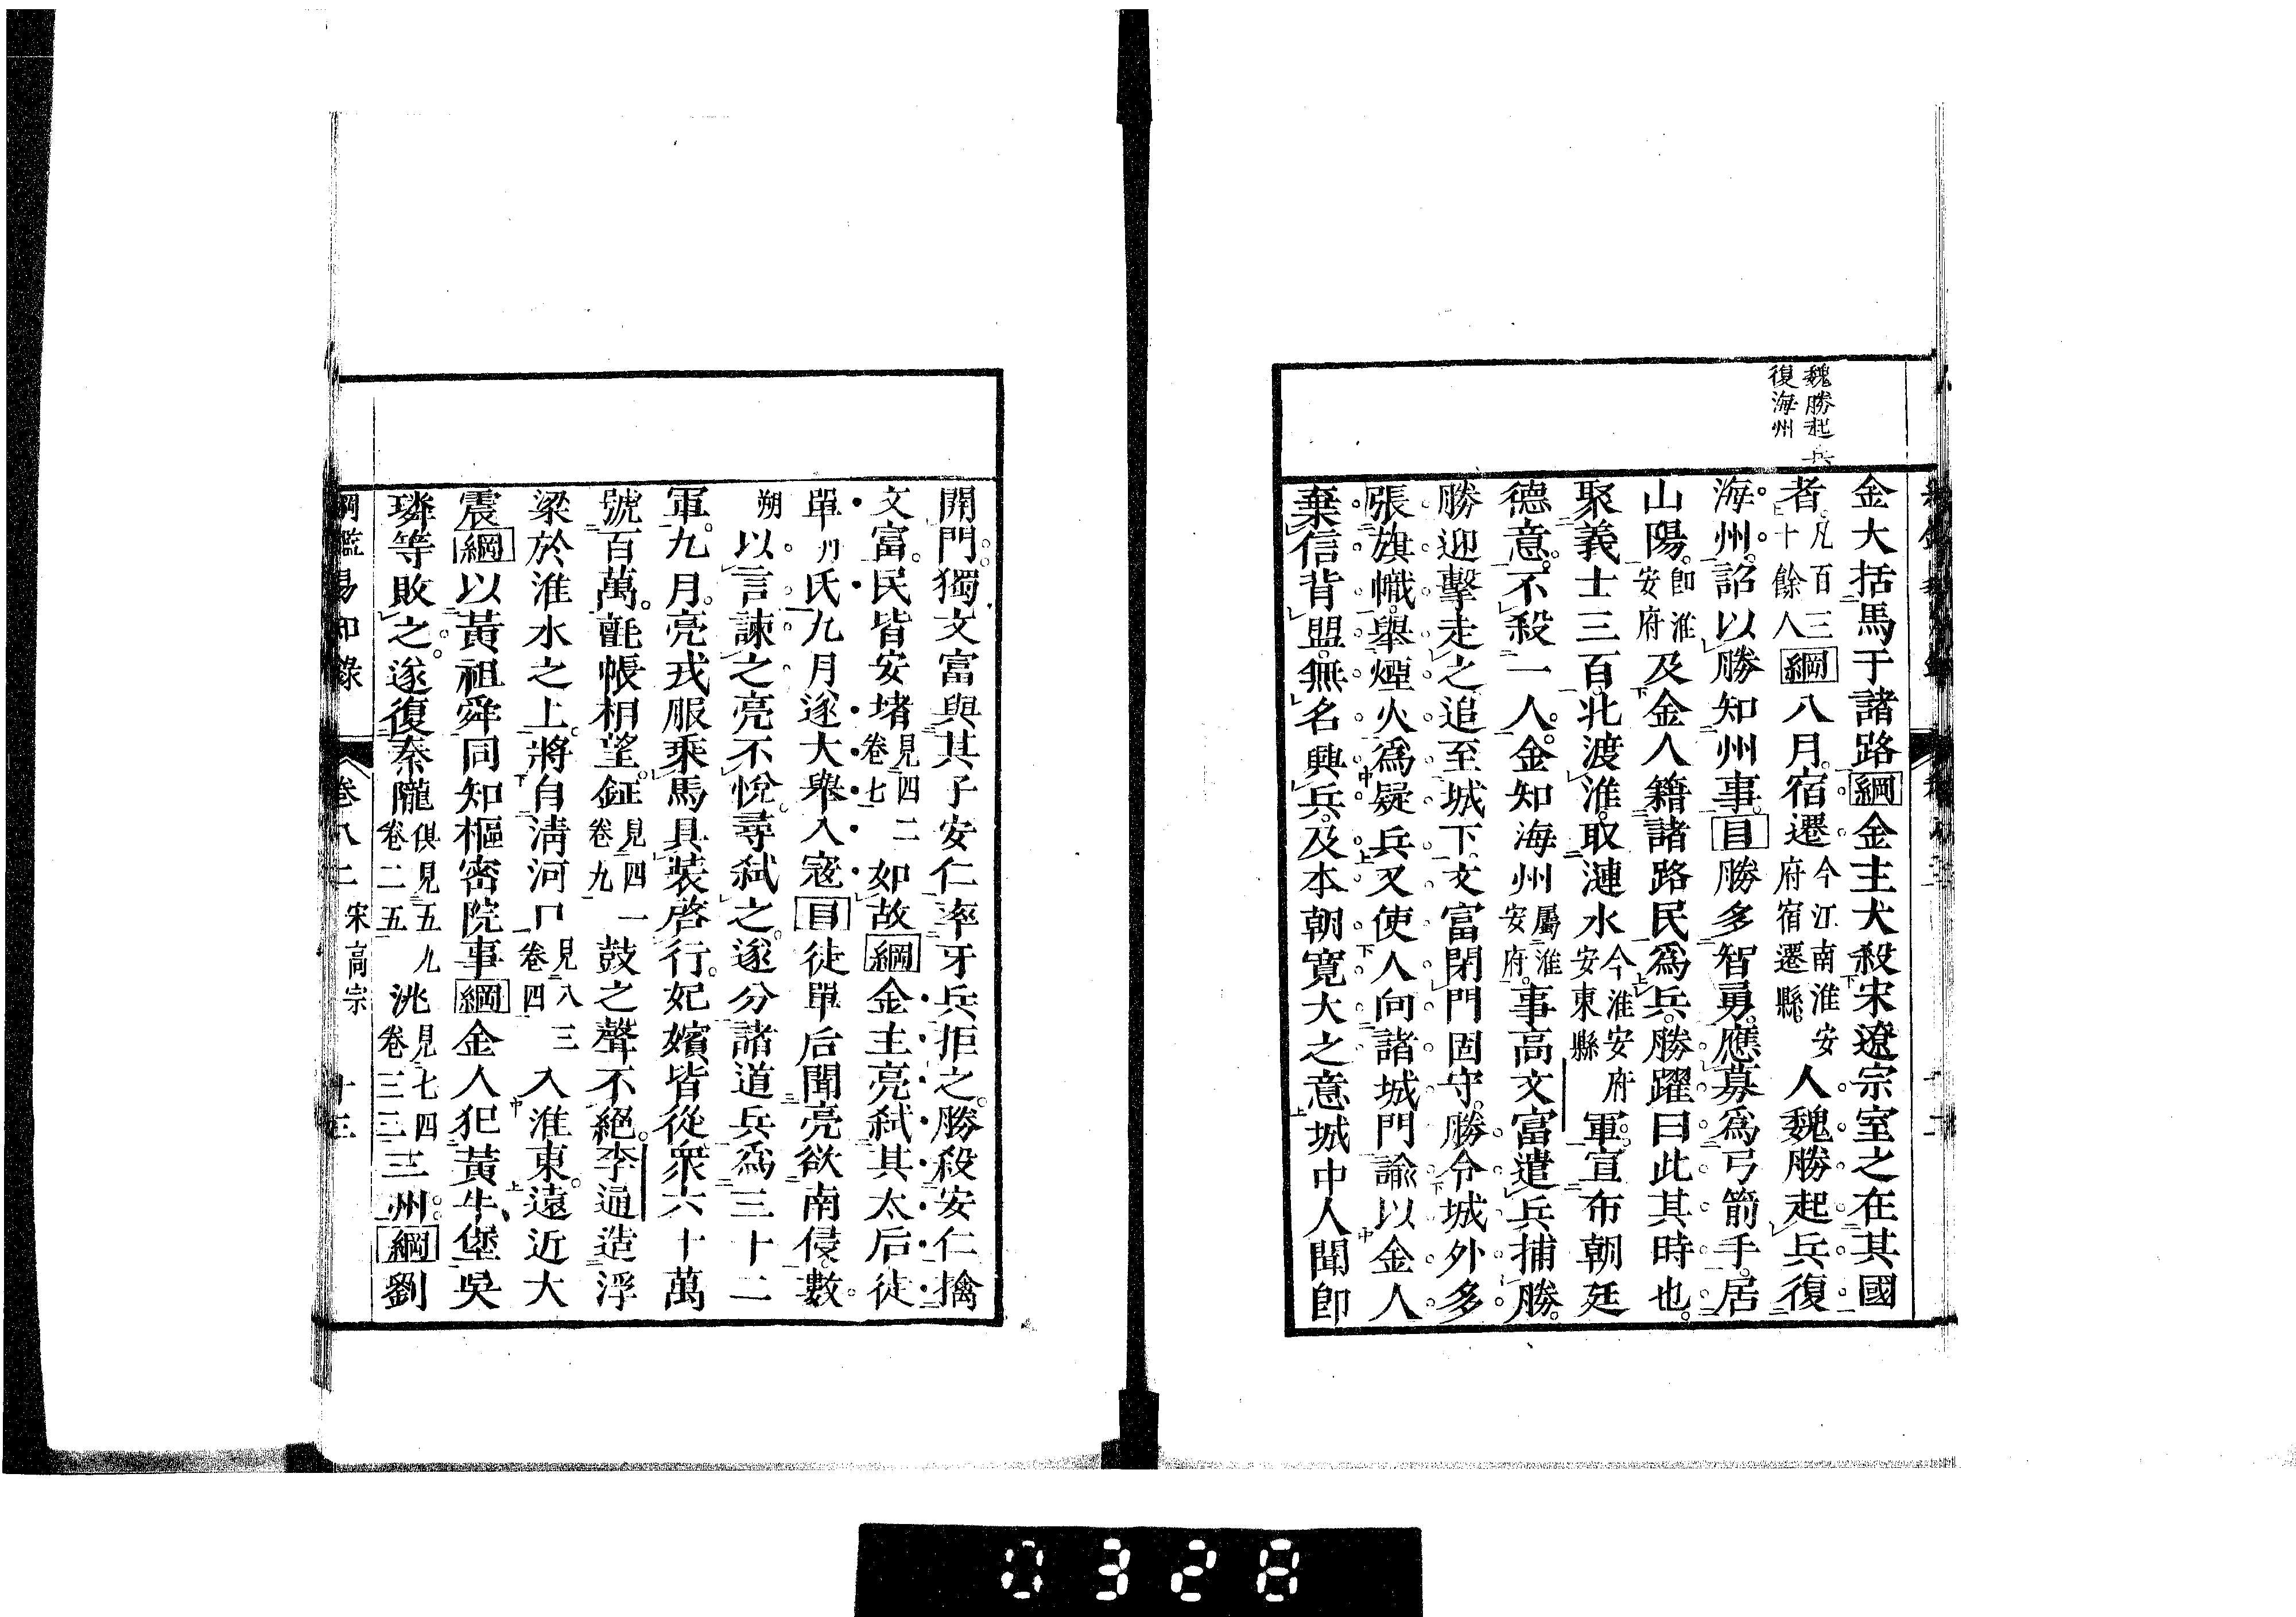 魏勝起兵
復海州
金大括馬于諸路綱金主大殺宋遼宗室之在其國
者凡百三十餘人綱八月宿遷今江南淮安府宿遷縣人魏勝起兵復
海州詔以勝知州事目勝多智勇應募爲弓箭手居
山陽卽淮安府及金人籍諸路民爲兵勝躍曰此其時也
聚義士三百北渡淮取漣水今淮安府安東縣軍宣布朝廷
德意不殺一人金知海州屬淮安府事高文富遣兵捕勝
勝迎擊走之追至城下文富閉門固守勝令城外多
張旗幟舉煙火爲疑兵又使人向諸城門諭以金人
棄信背盟無名興兵及本朝寬大之意城中人聞卽
開門獨文富與其子安仁率牙兵拒之勝殺安仁擒
文富民皆安堵見四二卷七如故綱金主亮弒其太后徒
單氏九月遂大舉入寇目徒單后聞亮欲南侵數
朔以言諫之亮不悅尋弒之遂分諸道兵爲三十二
軍九月亮戎服乘馬具裝啓行妃嬪皆從衆六十萬
號百萬氈帳相望鉦見四一卷九鼓之聲不絕李通造浮
梁於淮水之上將自淸河口見八三卷四入淮東遠近大
震綱以黃祖舜同知樞密院事綱金人犯黃牛堡吳
璘等敗之遂復秦隴俱見五九卷二五洮見七四卷三三三州綱劉
綱鑑易知錄 卷八二 宋高宗 十三
0328